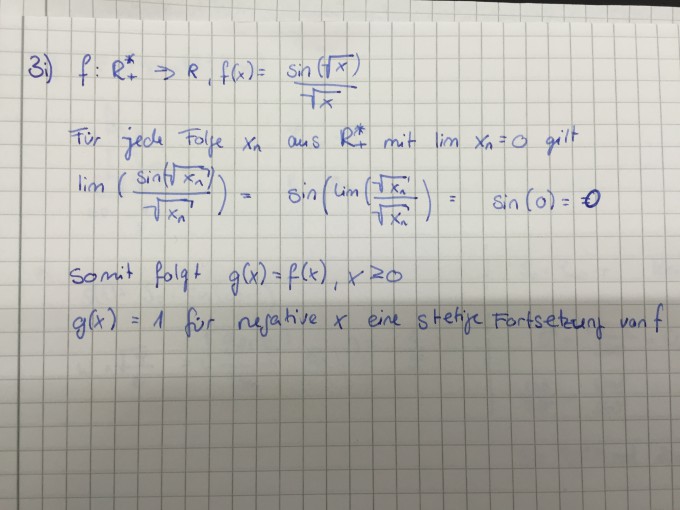 3i) f: R*+ → R, f(x) = sin(√x) / √x
Für jede Folge xn aus R*+ mit lim xn = 0 gilt
lim ( sin(√xn) / √xn ) = sin( lim( √xn / √xn ) = sin(0) = 0
Somit folgt g(x) = f(x), x ≥ 0
g(x) = 1 für negative x eine stetige Fortsetzung von f